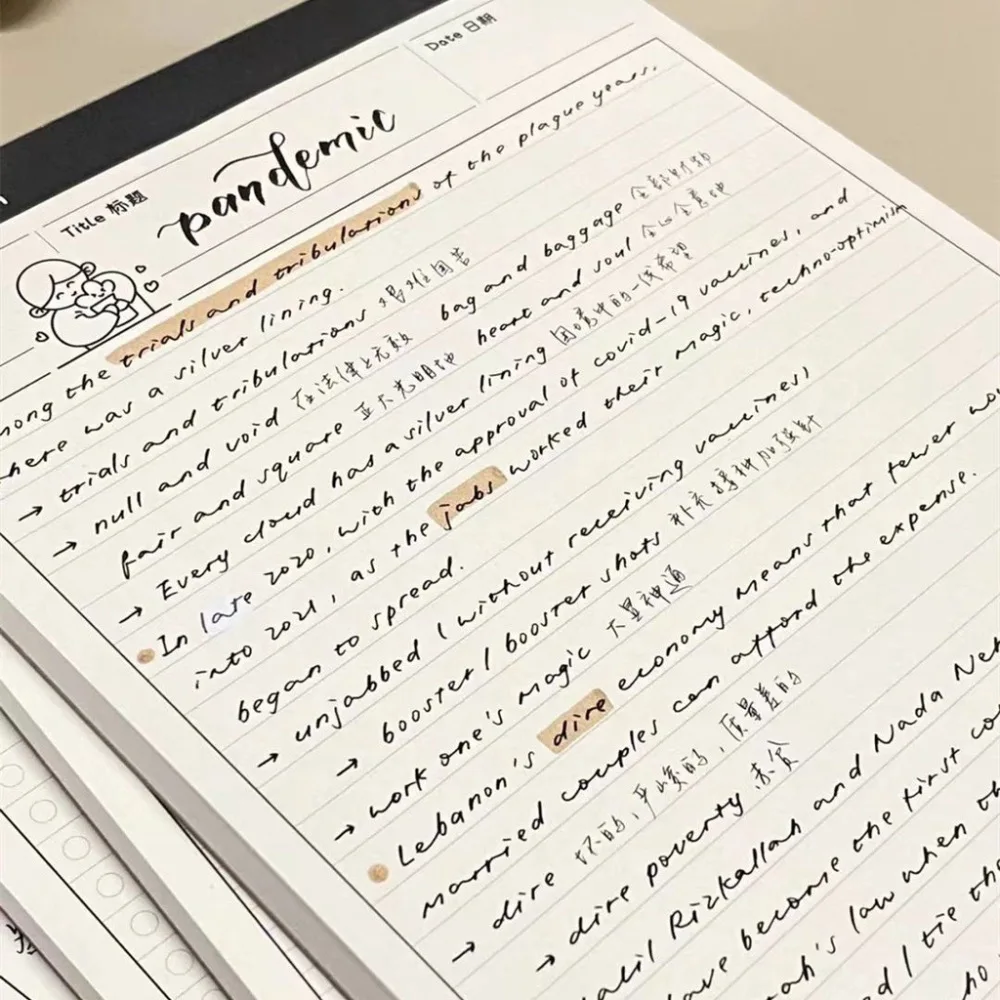 Title 标题
Date 日期
pandemic
mong the trials and tribulations of the plague years,
here was a silver lining.
→ trials and tribulations 艰难困苦
→ null and void 在法律上无效 bag and baggage 全部财物
fair and square 正大光明地 heart and soul 全心全意地
→ Every cloud has a silver lining 困境中的一线希望
In late 2020, with the approval of covid-19 vaccines, and
into 2021, as the jabs worked their magic, techno-optimism
began to spread.
→ unjabbed (without receiving vaccines)
→ booster / booster shots 补充接种加强针
→ work one's magic 大显神通
Lebanon's dire economy means that few wo
married couples can afford the expense.
→ dire 坏的, 严峻的, 质量差的
→ dire poverty 赤贫
alil Rizkallah and Nada Neh
ave become the first co
ah's law when th
d / tie the
ho